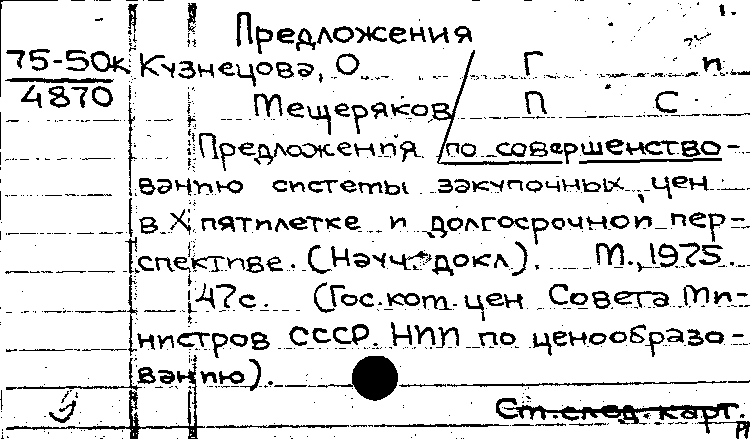 Предложения
75-50к Кузнецова, О Г п
4870 Мещеряков П С
Предложения по совершенство-
ванию системы закупочных цен
в X пятилетке и долгосрочной пер-
спективе. (Науч. докл). М., 1975.
47с. (Гос. ком. цен Совета Ми-
нистров СССР. НИИ по ценообразо-
ванию).
См. след. карт.